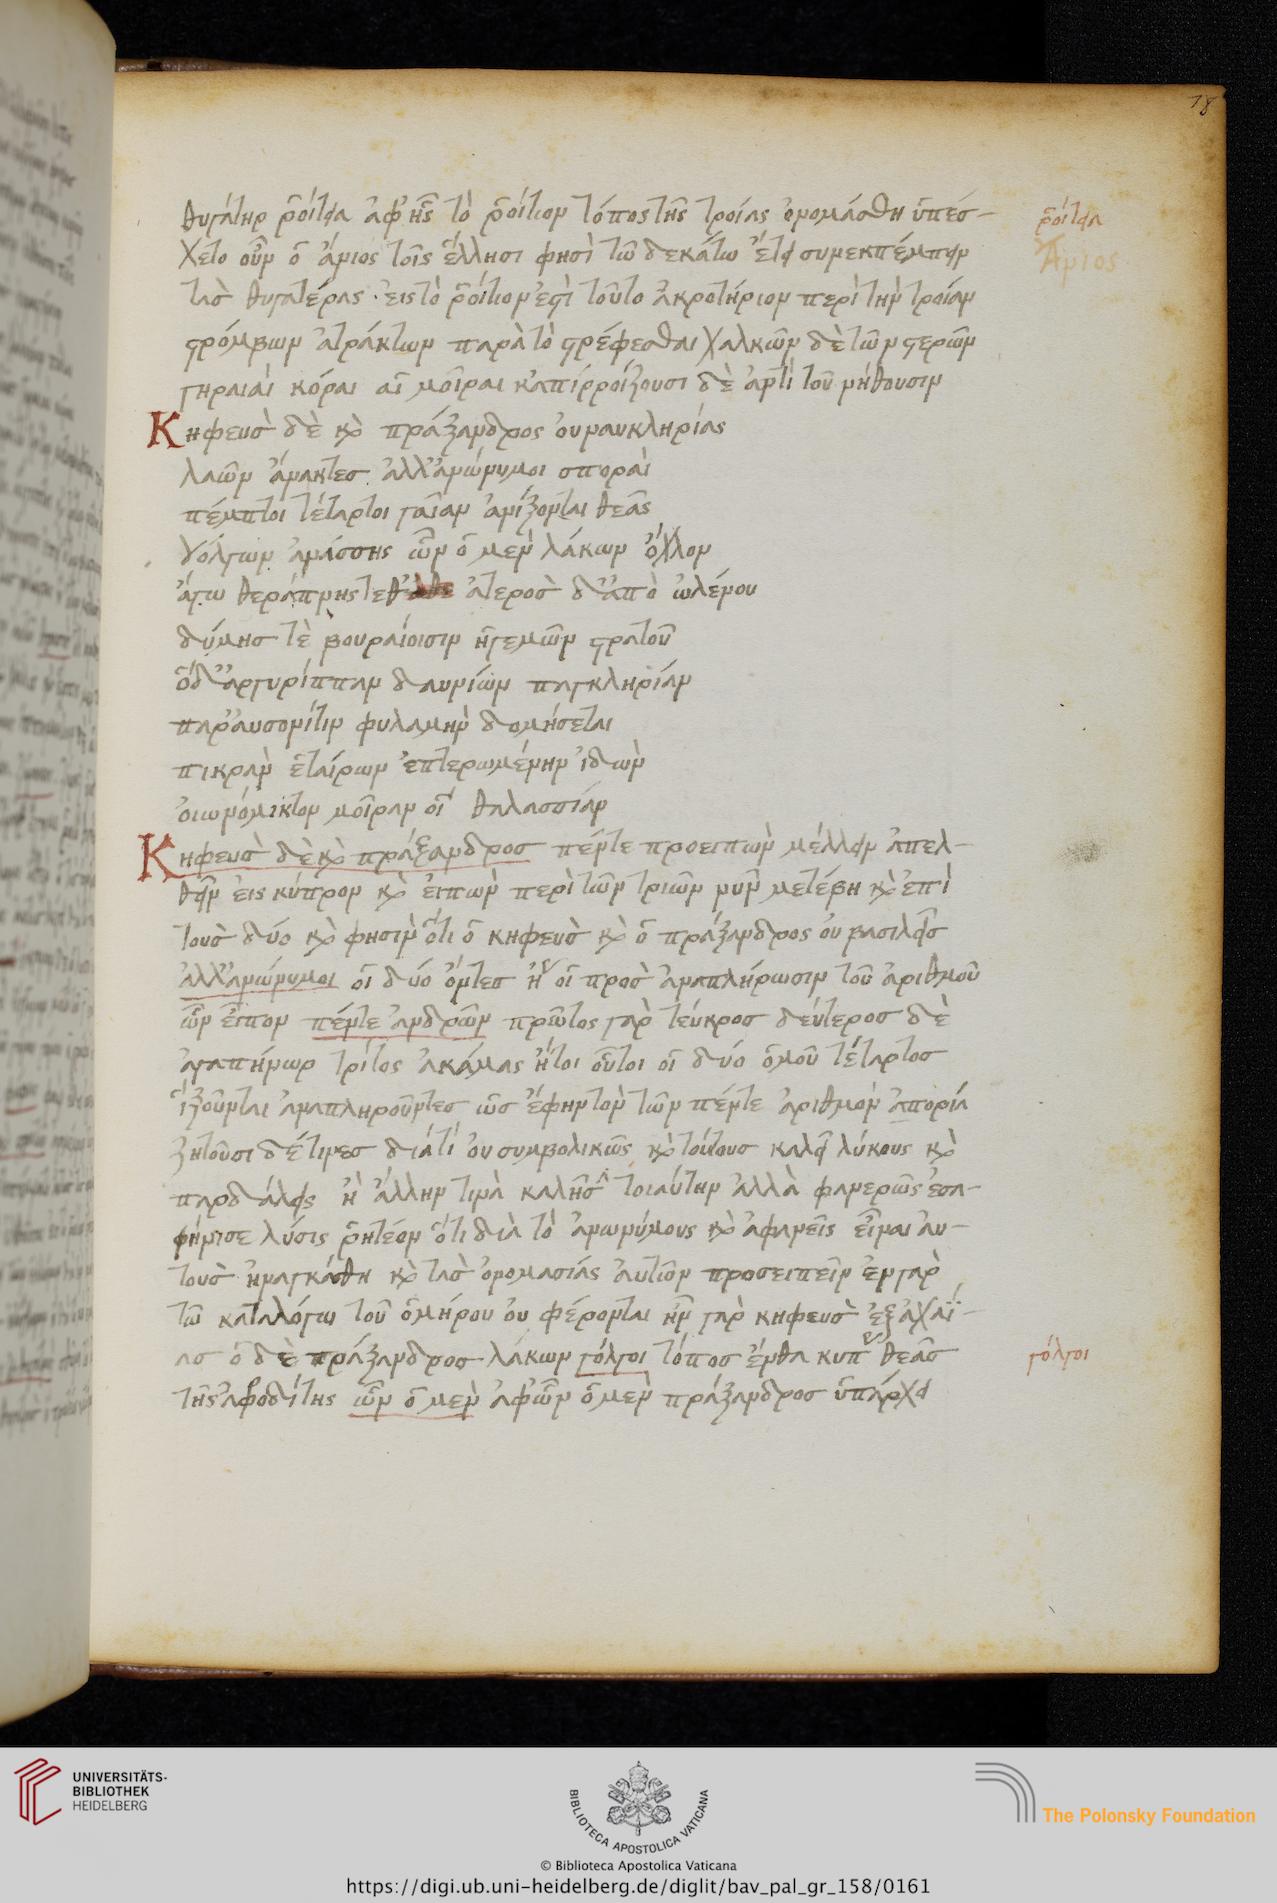 18
θυγάτηρ ῥοίτεια ἀφ' ἧς τὸ ῥοίτιον τόπος τῆς τροίας ὀνομάσθη ὑπέσ-
ῥοίτεια
χετο οὖν ὁ ἄνιος τοῖς ἕλλησι φησὶ τῶ δεκάτω ἔτει συνεκπέμπειν
Ἄνιος
τὰσ θυγατέρας· εἰς τὸ ῥοίτιον ἐστὶ τοῦτο ἀκρωτήριον περὶ τὴν τροίαν
στρόμβων ἀτράκτων παρὰ τὸ στρέφεσθαι χαλκῶν δὲ τῶν στερῶν
γηραιαὶ κόραι αἱ μοῖραι κἀπιρροίζουσι δὲ ἀντὶ τοῦ νήθουσιν
Κηφευσ δὲ κὶ πράξανδρος οὐ ναυκληρίας
λαῶν ἄνακτεσ ἀλλ' ἀνώνυμοι σποραὶ
πέμπτοι τέταρτοι γαῖαν ἀνίξονται θεᾶς
γόλγων ἀνάσσης ὧν ὁ μεν λάκων ὄχλον
ἄγω θεράπνης ἅτεροσ δ' ἀπὸ ὠλένου
δύμησ τὲ βουραίοισιν ἡγεμὼν στρατοῦ
ὁ δ' ἀργυρίππαν δαυνίων παγκληρίαν
παρ' αυσονίτιν φυλαμὴν δομήσεται
πικρὰν ἑταίρων ἐπτερωμένην ἰδὼν
οἰωνόμικτον μοῖραν οἳ θαλασσίαν
Κηφεὺσ δὲ κὶ πράξανδροσ πέντε προειπὼν μέλλειν ἀπελ-
θεῖν εἰς κύπρον κὶ εἰπὼν περὶ τῶν τριῶν νῦν μετέβη κὶ ἐπὶ
τοὺσ δύο κὶ φησὶν ὅτι ὁ κηφεὺσ κὶ ὁ πράξανδρος οὐ βασιλεῖσ
ἀλλ' ἀνώνυμοι οἱ δύο ὄντεσ ἢ οἱ πρὸσ ἀναπλήρωσιν τοῦ ἀριθμοῦ
ὧν εἶπον πέντε ἀνδρῶν πρῶτος γὰρ τεύκροσ δεύτεροσ δὲ
ἀγαπήνωρ τρίτος ἀκάμας ἤτοι οὗτοι οἱ δύο ὁμοῦ τέταρτοσ
ἵξοῦνται ἀναπληροῦντεσ ὡσ ἔφην τὸν τῶν πέντε ἀριθμόν ἀπορία
ζητοῦσι δέ τινεσ διάτί οὐ συμβολικῶς κὶ τούτουσ καλεῖ λύκους κὶ
παρδάλεις ἢ ἄλλην τινὰ κλῆσιν τοιαύτην ἀλλὰ φανερῶς ἐσα-
φήνισε λύσις ῥητέον ὅτι διὰ τὸ ἀνωνύμους κὶ ἀφανεῖς εἶναι αὐ-
τοὺσ ἠναγκάσθη κὶ τὰσ ὀνομασίας αὐτῶν προσειπεῖν ἐν γὰρ
τῶ καταλόγω τοῦ ὁμήρου οὐ φέρονται ἦν γὰρ κηφεὺσ ἐξ ἀχαΐ-
ασ ὁ δὲ πράξανδρος λάκων γόλγοι τόποσ ἔνθα κυπ θεᾶσ
γόλγοι
τῆς ἀφροδίτης ὧν ὁ μεν ἀφ' ὧν ὁ μὲν πράξανδροσ ὑπάρχει
UNIVERSITÄTS-
BIBLIOTHEK
HEIDELBERG
BIBLIOTECA APOSTOLICA VATICANA
The Polonsky Foundation
© Biblioteca Apostolica Vaticana
https://digi.ub.uni-heidelberg.de/diglit/bav_pal_gr_158/0161